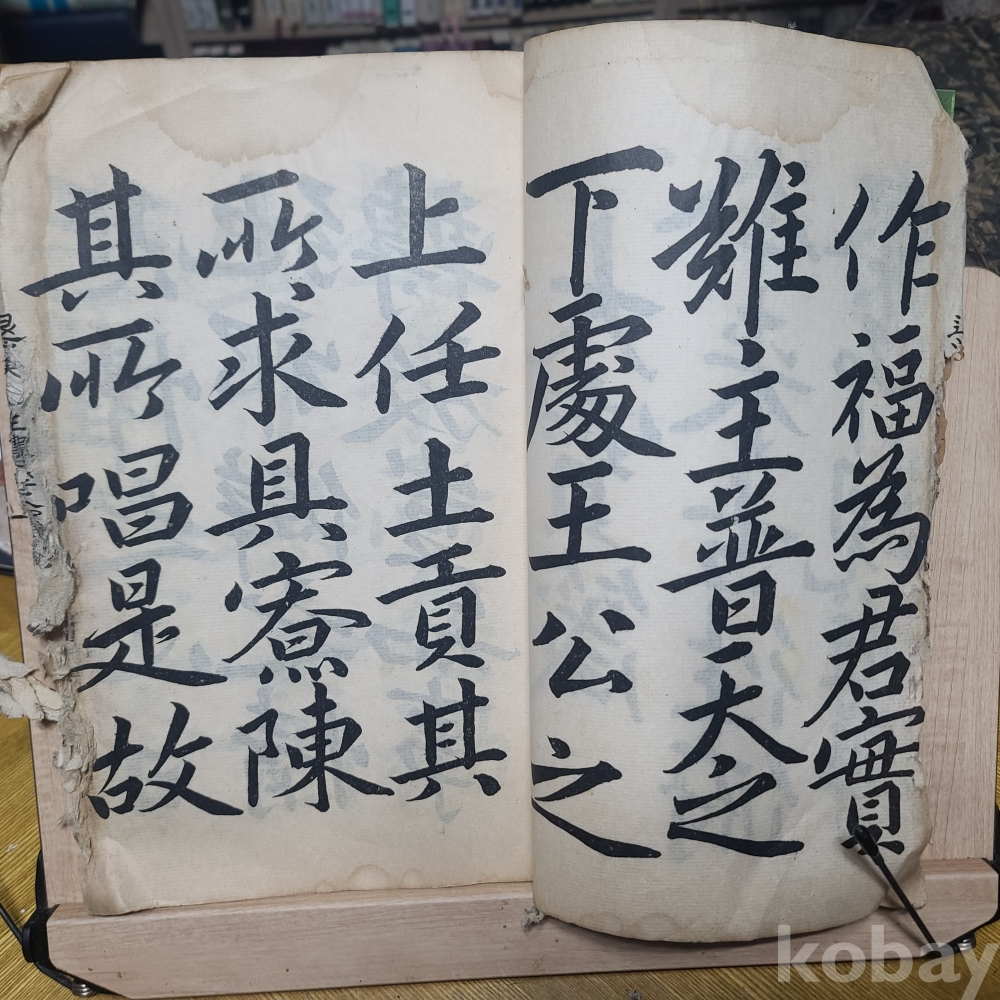 作福為君實
難主普天之
下處王公之
上任土貢其
所求具寮陳
其所唱是故
kobay